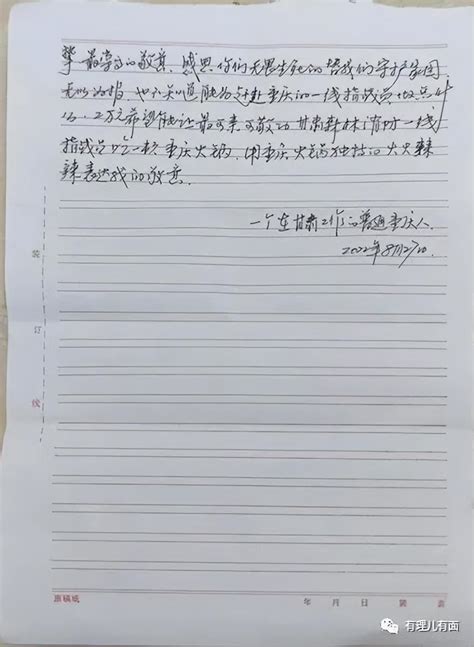 挚最崇高的敬意、感恩你们无畏生死的替我们守护家园
无以为报 也不知道能为赴重庆的一线指战员做点什
么、2万元希望能让最可亲可敬的甘肃森林消防一线
指战员吃一顿重庆火锅、用重庆火锅独特的火火辣
辣表达我的敬意.
一个在甘肃工作的普通重庆人.
2022年8月27日.
装
订
线
原稿纸 年 月 日 第 页
有理儿有面